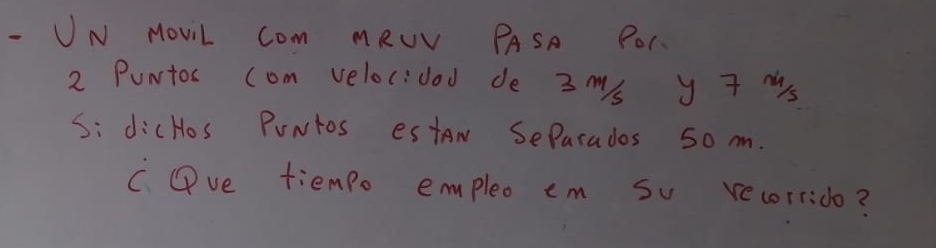 - UN MOVIL COM MRUV PASA POR
2 PUNTOS COM velocidad de 3 m/s y 7 m/s
Si dicHos PUNtos estAN SePaRados 50 m.
¿ Que tiempo empleo em su recorrido?